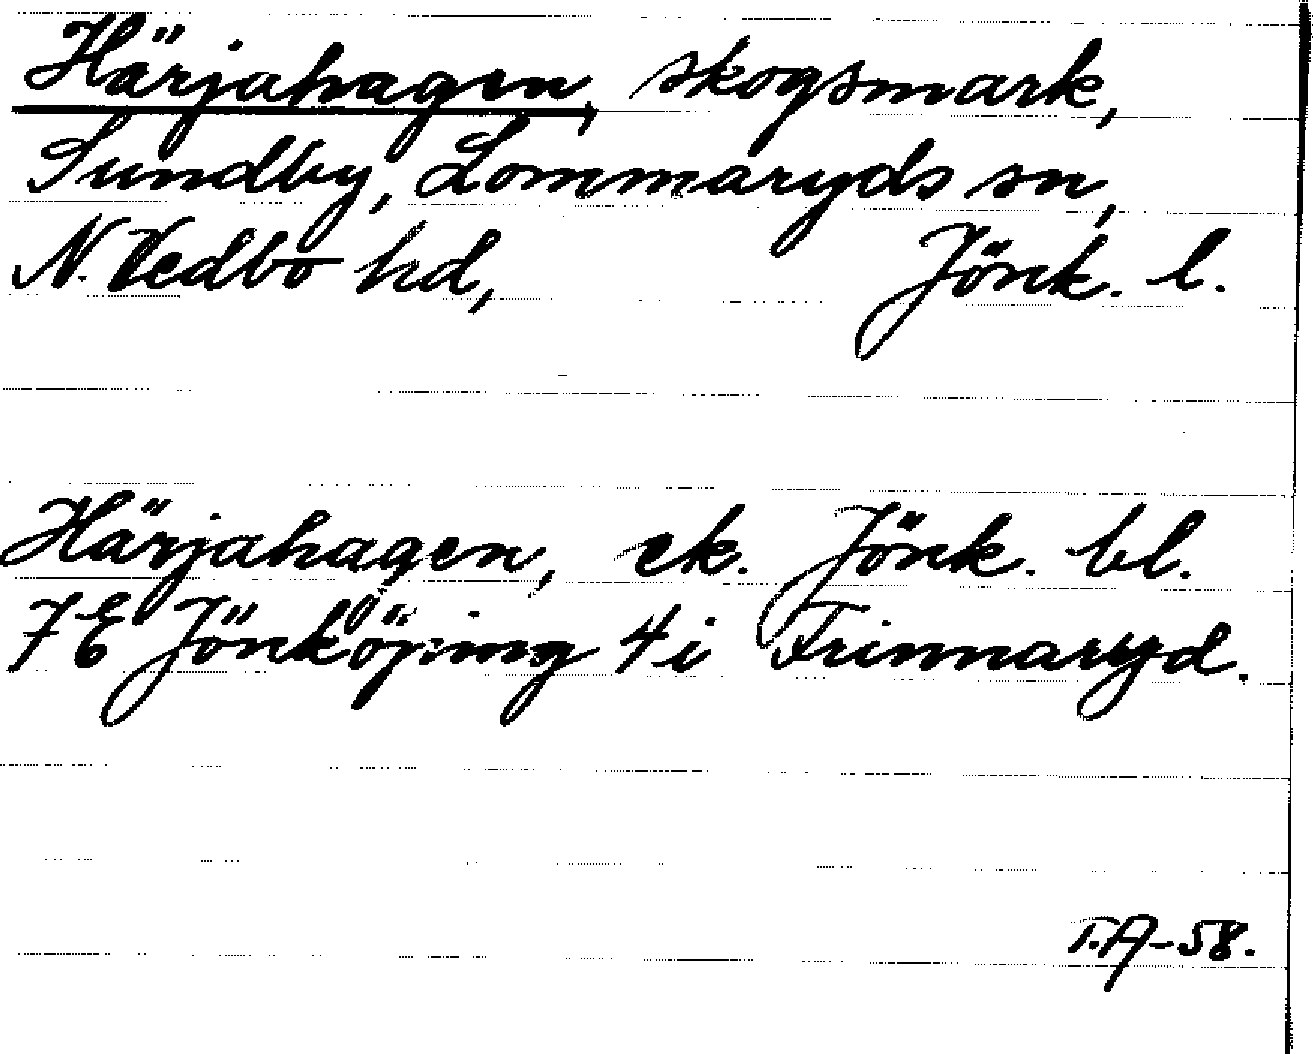 Härjahagen, skogsmark,
Sundby, Lommaryds sn,
N. Vedbo hd, Jönk. l.
Härjahagen, ek. Jönk. bl.
7E Jönköping 4i Frinnaryd.
T.A-58.